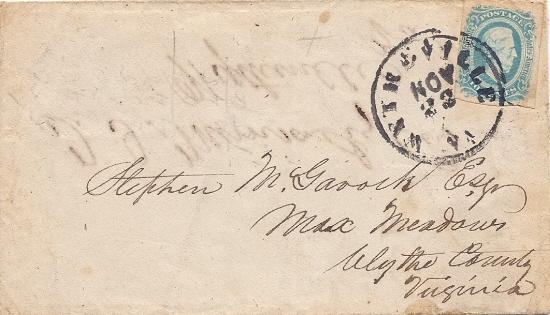 WYTHEVILLE
NOV
23
VA
POSTAGE
Stephen McGavock Esqr
Max Meadows
Wythe County
Virginia